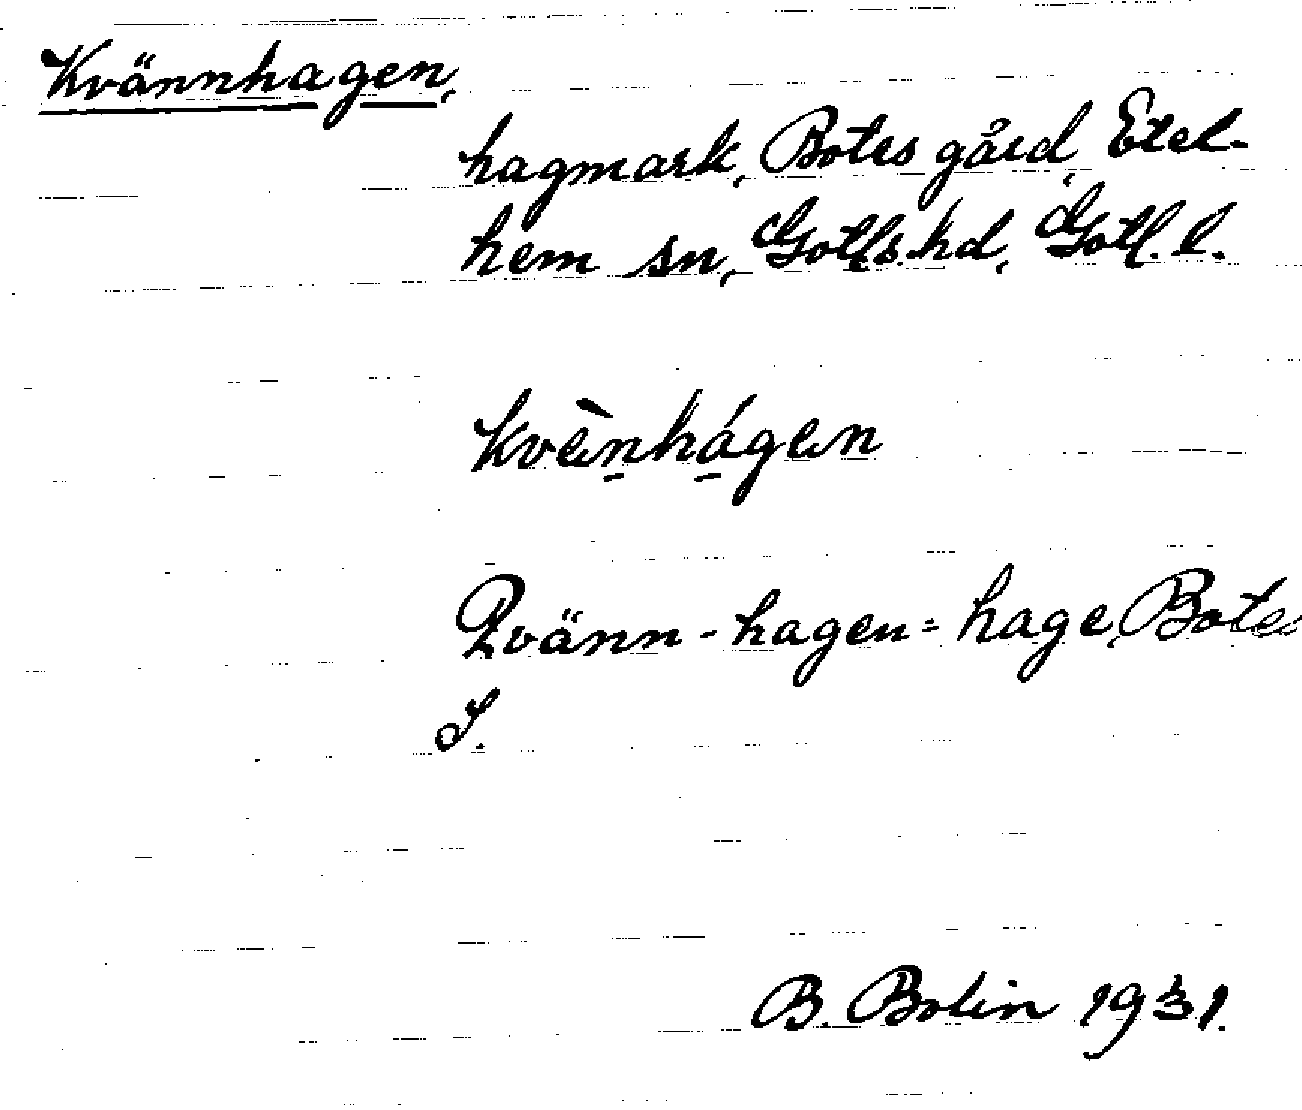 Kvännhagen,
hagmark, Botes gård, Etel-
hem sn, Gotls. hd, Gotl. l.
kvènhágen
Qvänn-hagen = hage, Botes
S.
B. Bolin 1931.